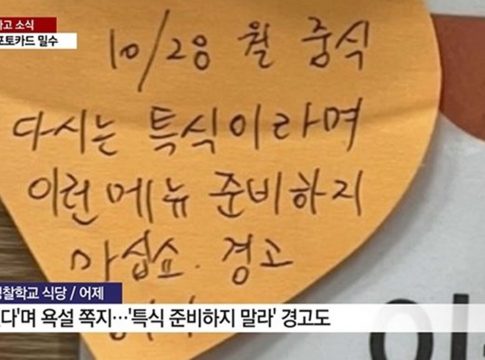 고 소식
포토카드 밀수
10/28 월 중식
다시는 특식이라며
이런메뉴 준비하지
마십쇼. 경고
경찰학교 식당 / 어제
다'며 욕설 쪽지…'특식 준비하지 말라' 경고도